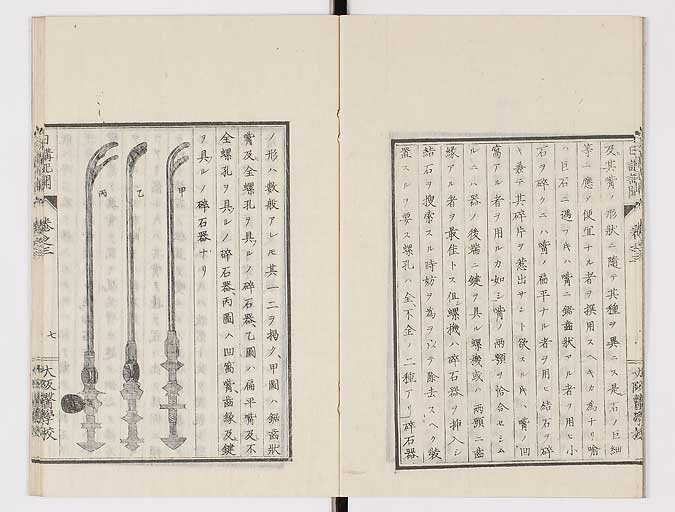 及其嘴ノ形狀ニ隨テ其種ヲ異ニス是石ノ巨細
等ニ應テ便宜ナル者ヲ撰用スヘキカ為ナリ
ハ巨石ニ遇フキハ嘴ニ鋸齒狀アル者ヲ用ヒ小
石ヲ碎クニハ嘴ノ扁平ナル者ヲ用ヒ結石ヲ碎
キ其碎片ヲ惹出サント欲スルキハ嘴ノ凹
窩アル者ヲ用ルカ如シ嘴ノ兩顎ヲ恰合セシム
ルニハ器ノ後端ニ鍵ヲ具ル螺機或ハ兩顎ニ齒
緣アル者ヲ最佳トス但螺機ハ碎石器ヲ挿入シ
結石ヲ搜索スル時妨ヲ為ヲ以テ除去スヘク裝
置スルヲ要ス螺孔ハ全不全ノ二種アリ碎石器
ノ形ハ數般アレモ其一二ヲ揭ク甲圖ハ鋸齒狀
嘴及全螺孔ヲ具ルノ碎石器乙圖ハ扁平嘴及不
全螺孔ヲ具ルノ碎石器丙圖ハ凹窩嘴齒緣及鍵
ヲ具ルノ碎石器ナリ
甲
乙
丙
日講記聞
卷之三
七
大阪醫學校